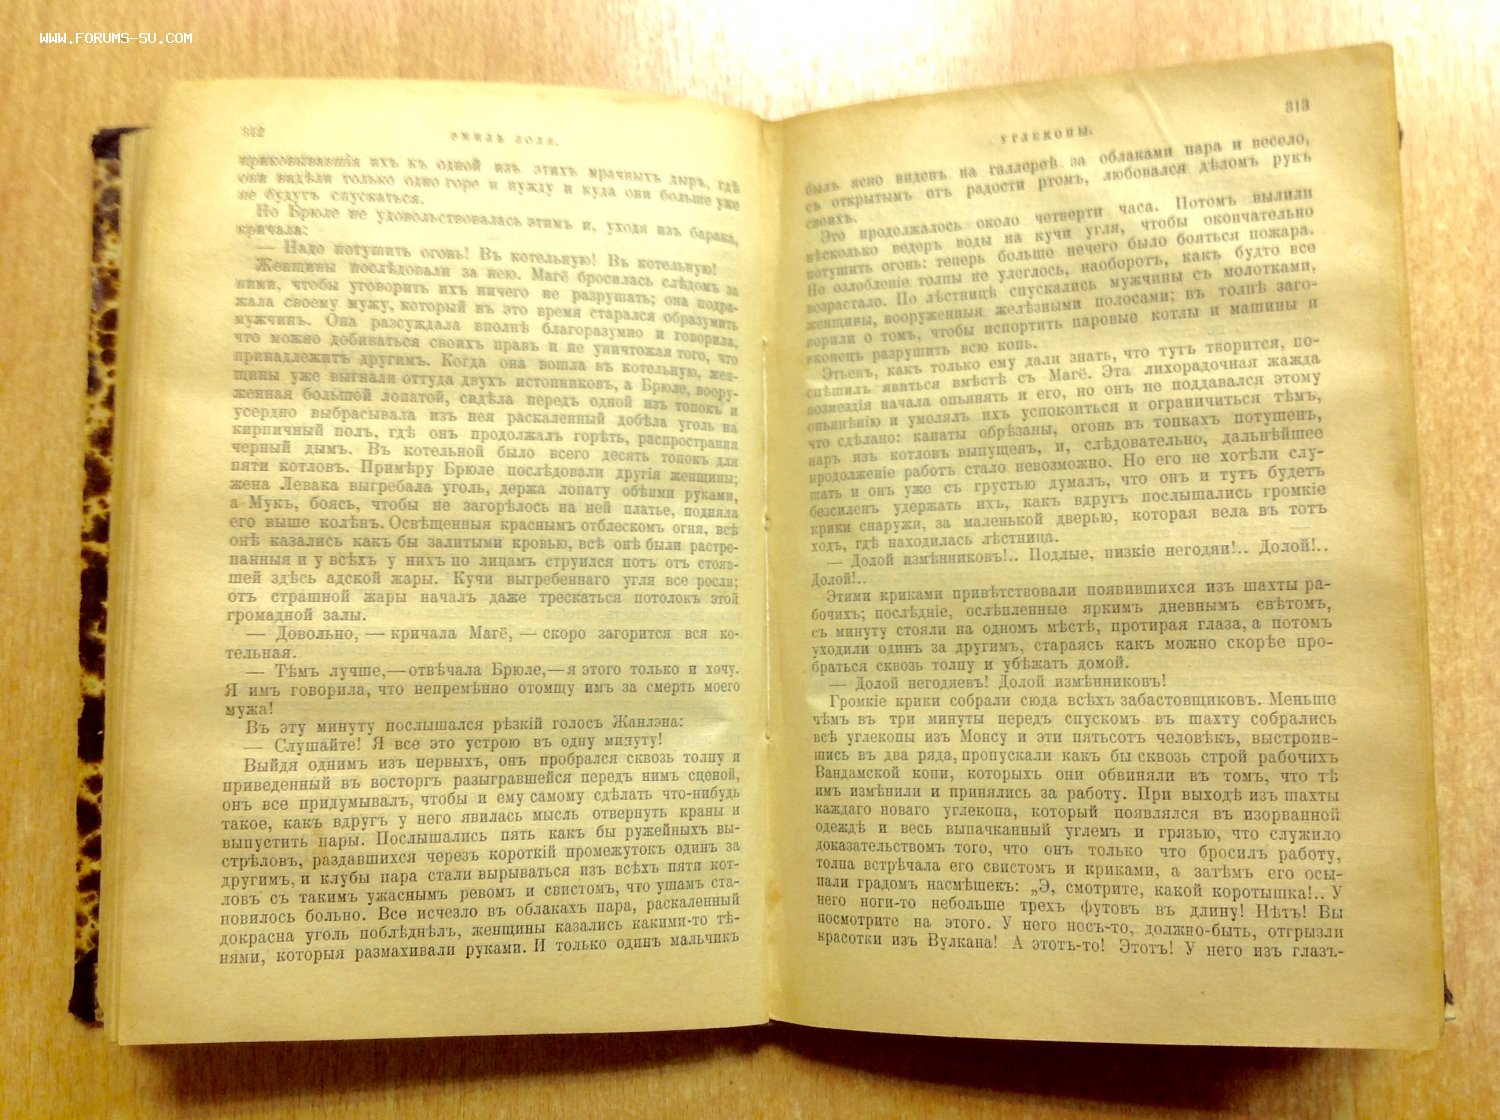 WWW.FORUMS-SU.COM
312
ЭМИЛЬ ЗОЛЯ.
приковывавшія ихъ къ одной изъ этихъ мрачныхъ дыръ, гдѣ
они видѣли только одно горе и нужду и куда они больше уже
не будутъ спускаться.
Но Брюле не удовольствовалась этимъ и, уходя изъ барака,
кричала:
— Надо потушить огонь! Въ котельную! Въ котельную!
Женщины послѣдовали за нею. Магё бросилась слѣдомъ за
ними, чтобы уговорить ихъ ничего не разрушать; она подра-
жала своему мужу, который въ это время старался образумить
мужчинъ. Она разсуждала вполнѣ благоразумно и говорила,
что можно добиваться своихъ правъ и не уничтожая того, что
принадлежитъ другимъ. Когда она вошла въ котельную, жен-
щины уже выгнали оттуда двухъ истопниковъ, а Брюле, воору-
женная большой лопатой, сидѣла передъ одной изъ топокъ и
усердно выбрасывала изъ нея раскаленный добѣла уголь на
кирпичный полъ, гдѣ онъ продолжалъ горѣть, распространяя
черный дымъ. Въ котельной было всего десять топокъ для
пяти котловъ. Примѣру Брюле послѣдовали другія женщины;
жена Левака выгребала уголь, держа лопату обѣими руками,
а Мукъ, боясь, чтобы не загорѣлось на ней платье, подняла
его выше колѣнъ. Освѣщенныя краснымъ отблескомъ огня, всѣ
онѣ казались какъ бы залитыми кровью, всѣ онѣ были растре-
панныя и у всѣхъ у нихъ по лицамъ струился потъ отъ стояв-
шей здѣсь адской жары. Кучи выгребеннаго угля все росли;
отъ страшной жары началъ даже трескаться потолокъ этой
громадной залы.
— Довольно, — кричала Магё, — скоро загорится вся ко-
тельная.
— Тѣмъ лучше,—отвѣчала Брюле,—я этого только и хочу.
Я имъ говорила, что непремѣнно отомщу имъ за смерть моего
мужа!
Въ эту минуту послышался рѣзкій голосъ Жанлэна:
— Слушайте! Я все это устрою въ одну минуту!
Выйдя однимъ изъ первыхъ, онъ пробрался сквозь толпу и
приведенный въ восторгъ разыгравшейся передъ нимъ сценой,
онъ все придумывалъ, чтобы и ему самому сдѣлать что-нибудь
такое, какъ вдругъ у него явилась мысль отвернуть краны и
выпустить пары. Послышались пять какъ бы ружейныхъ вы-
стрѣловъ, раздавшихся черезъ короткій промежутокъ одинъ за
другимъ, и клубы пара стали вырываться изъ всѣхъ пяти кот-
ловъ съ такимъ ужаснымъ ревомъ и свистомъ, что ушамъ ста-
новилось больно. Все исчезло въ облакахъ пара, раскаленный
докрасна уголь поблѣднѣлъ, женщины казались какими-то тѣ-
нями, которыя размахивали руками. И только одинъ мальчикъ
313
УГЛЕКОПЫ.
былъ ясно виденъ на галлереѣ за облаками пара и весело,
съ открытымъ отъ радости ртомъ, любовался дѣломъ рукъ
своихъ.
Это продолжалось около четверти часа. Потомъ вылили
нѣсколько ведеръ воды на кучи угля, чтобы окончательно
потушить огонь: теперь больше нечего было бояться пожара.
Но озлобленіе толпы не улеглось, наоборотъ, какъ будто все
возрастало. По лѣстницѣ спускались мужчины съ молотками,
женщины, вооруженныя желѣзными полосами; въ толпѣ заго-
ворили о томъ, чтобы испортить паровые котлы и машины и
вконецъ разрушить всю копь.
Этьенъ, какъ только ему дали знать, что тутъ творится, по-
спѣшилъ явиться вмѣстѣ съ Магё. Эта лихорадочная жажда
возмездія начала опьянять и его, но онъ не поддавался этому
опьянѣнію и умолялъ ихъ успокоиться и ограничиться тѣмъ,
что сдѣлано: канаты обрѣзаны, огонь въ топкахъ потушенъ,
паръ изъ котловъ выпущенъ, и, слѣдовательно, дальнѣйшее
продолженіе работъ стало невозможно. Но его не хотѣли слу-
шать и онъ уже съ грустью думалъ, что онъ и тутъ будетъ
безсиленъ удержать ихъ, какъ вдругъ послышались громкіе
крики снаружи, за маленькой дверью, которая вела въ тотъ
ходъ, гдѣ находилась лѣстница.
— Долой измѣнниковъ!.. Подлые, низкіе негодяи!.. Долой!..
Долой!..
Этими криками привѣтствовали появившихся изъ шахты ра-
бочихъ; послѣдніе, ослѣпленные яркимъ дневнымъ свѣтомъ,
съ минуту стояли на одномъ мѣстѣ, протирая глаза, а потомъ
уходили одинъ за другимъ, стараясь какъ можно скорѣе про-
браться сквозь толпу и убѣжать домой.
— Долой негодяевъ! Долой измѣнниковъ!
Громкіе крики собрали сюда всѣхъ забастовщиковъ. Меньше
чѣмъ въ три минуты передъ спускомъ въ шахту собрались
всѣ углекопы изъ Монсу и эти пятьсотъ человѣкъ, выстроив-
шись въ два ряда, пропускали какъ бы сквозь строй рабочихъ
Вандамской копи, которыхъ они обвиняли въ томъ, что тѣ
имъ измѣнили и принялись за работу. При выходѣ изъ шахты
каждаго новаго углекопа, который появлялся въ изорванной
одеждѣ и весь выпачканный углемъ и грязью, что служило
доказательствомъ того, что онъ только что бросилъ работу,
толпа встрѣчала его свистомъ и криками, а затѣмъ его осы-
пали градомъ насмѣшекъ: „Э, смотрите, какой коротышка!.. У
него ноги-то небольше трехъ футовъ въ длину! Нѣтъ! Вы
посмотрите на этого. У него носъ-то, должно-быть, отгрызли
красотки изъ Вулкана! А этотъ-то! Этотъ! У него изъ глазъ-